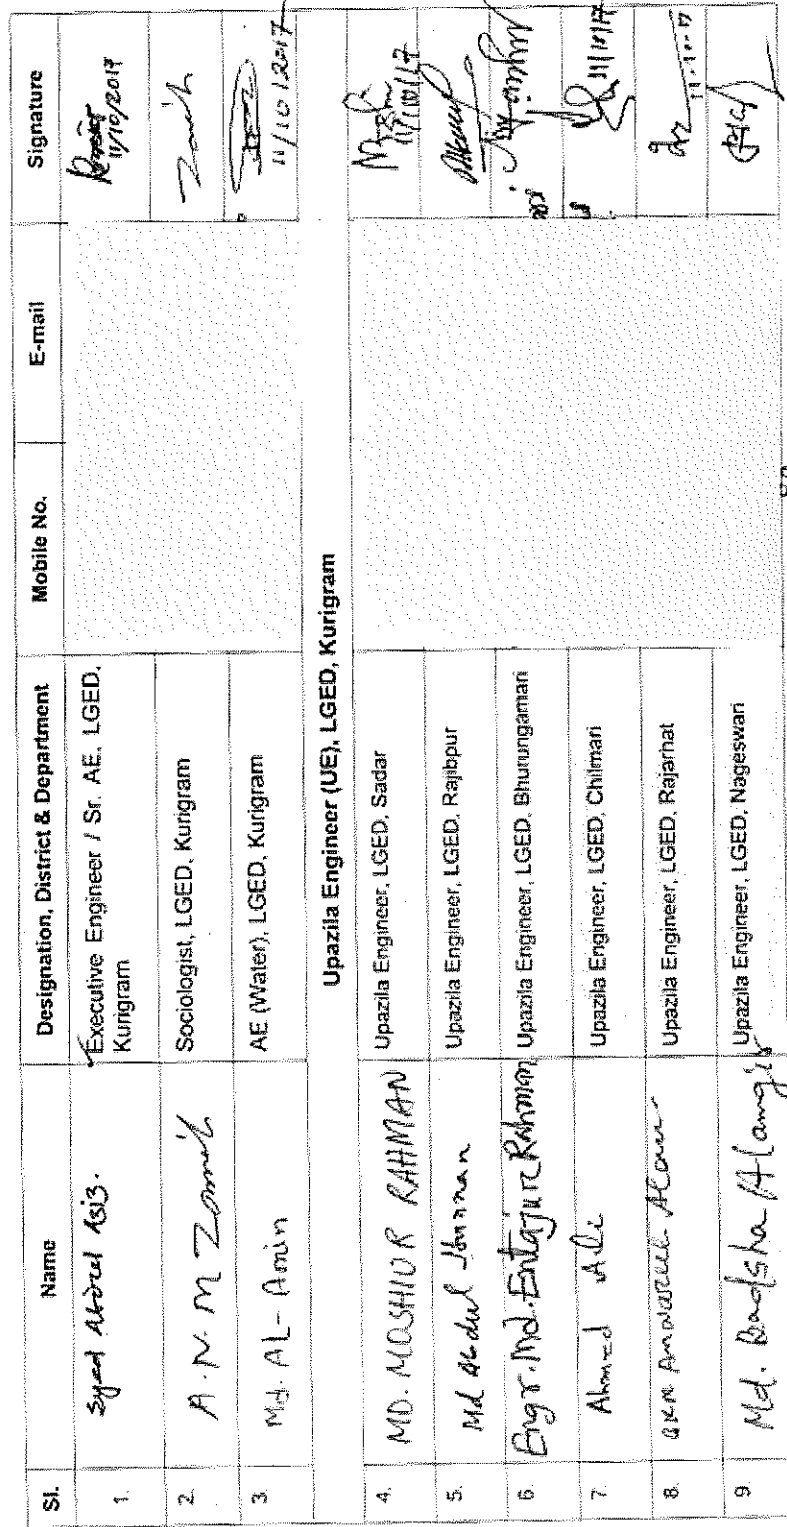 Sl. Name Designation, District & Department Mobile No. E-mail Signature
1. Syed Abdul Aziz. Executive Engineer / Sr. AE, LGED,
Kurigram 11/10/2017
2. A.N.M Zomeil Sociologist, LGED, Kurigram
3. Md. AL-Amin AE (Water), LGED, Kurigram 11/10/2017
Upazila Engineer (UE), LGED, Kurigram
4. MD. MOSHIUR RAHMAN Upazila Engineer, LGED, Sadar 11/10/17
5. Md Abdul Hannan Upazila Engineer, LGED, Rajibpur
6. Engr. Md. Entajur Rahman Upazila Engineer, LGED, Bhurungamari
7. Ahmed Ali Upazila Engineer, LGED, Chilmari 11/10/17
8. Alam Upazila Engineer, LGED, Rajarhat 11.10.17
9. Md. Badsha Alamgir Upazila Engineer, LGED, Nageswari